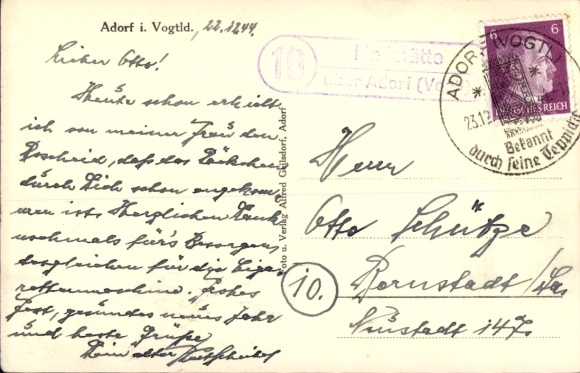 Adorf i. Vogtld. 22.12.44
Lieber Otto!
Heute schon erhielt
ich von meiner Frau den
Bescheid, daß das Päckchen
durch Dich schon angekom-
men ist. Herzlichen Dank
nochmals für's Besorgen
desgleichen für die Ziga-
rettenmaschine. Frohes
Fest, gesundes neues Jahr
und beste Grüße
Dein alter
Foto u. Verlag Alfred Geilsdorf, Adorf
10
über Adorf (Vo
ADORF (VOGTL)
23.12
Bekannt
durch seine Teppiche
6 6
DEUTSCHES REICH
Herrn
Otto Schütze
10.
Bernstadt/Sa
Neustadt 147